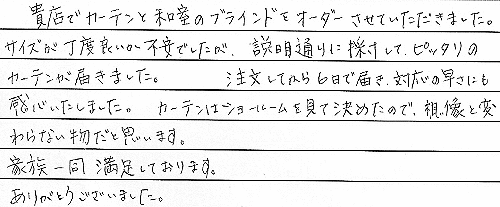 貴店でカーテンと和室のブラインドをオーダーさせていただきました。
サイズが丁度良いか不安でしたが、説明通りに採寸して、ピッタリの
カーテンが届きました。 注文してから6日で届き、対応の早さにも
感心いたしました。 カーテンはショールームを見て決めたので、想像と変
わらない物だと思います。
家族一同 満足しております。
ありがとうございました。